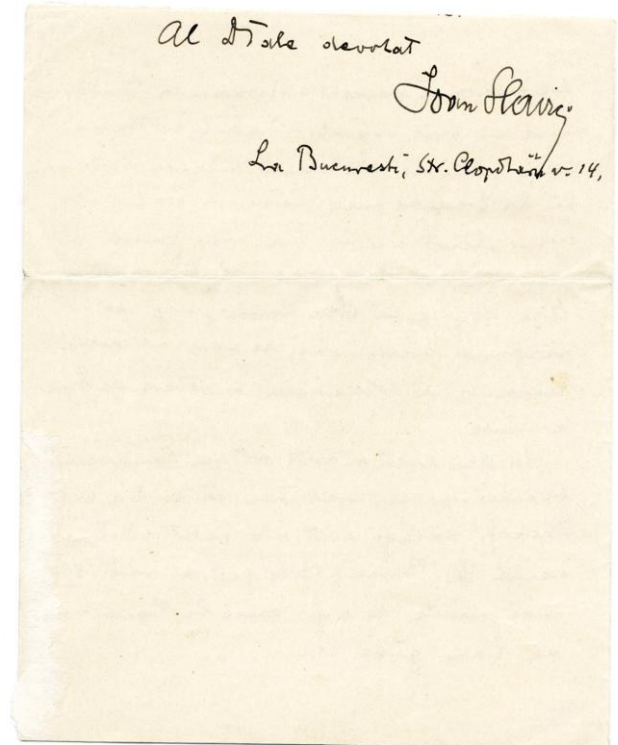 Al DTale devotat
Ioan Slavici
La Bucuresti, Str. Clopotarii v. 14,